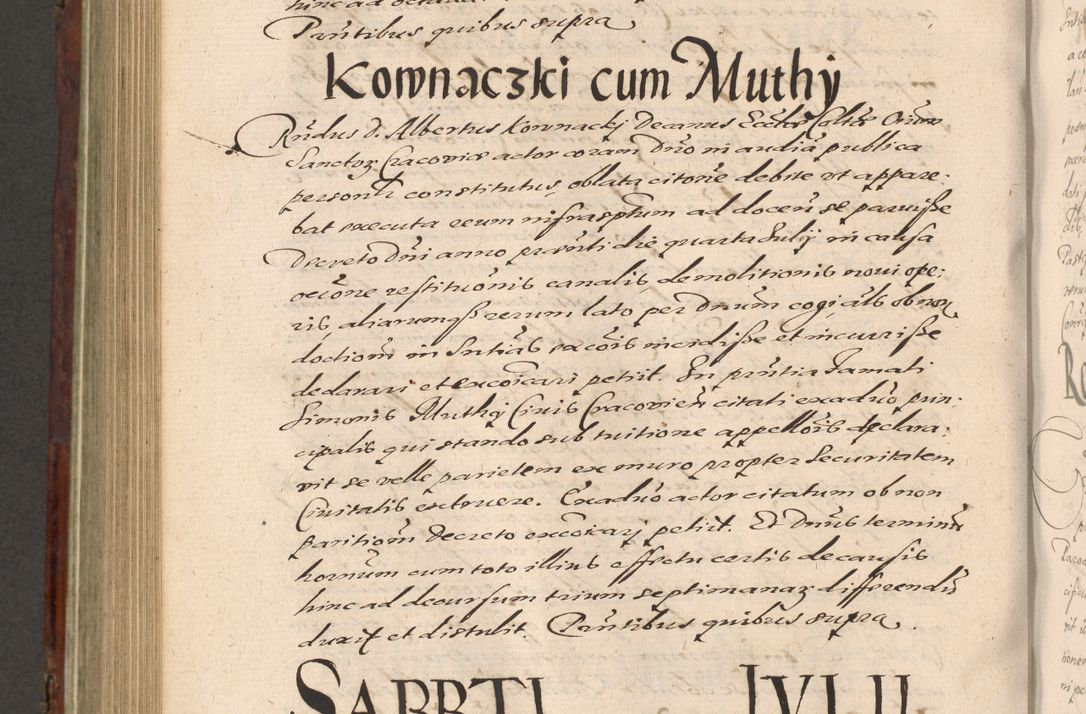 Pantibus quibus supra
Kownaczki cum Muthÿ
Rñdus d. Albertus Kownackj Decanus Eccliæ Collitæ Oium
Sanctoꝝ Cracoviæ actor coram Dño in audia publica
personlr constitutus, oblata citone debite ut appare:
bat executa reum infrascptum ad docen se paruisse
Decreto Dni anno prænti die quarta Julÿ in causa
ocione restitucionis canalis demolitionis novi ope:
ris, aliarumqȝ rerum lato per Dnum cogi, als ob non
doctiom in sntias excois incidisse et incurrisse
declarari et excoicari petiit. In pñtia famati
Simonis Muthÿ Civis Cracovien citati ex aduo prin:
cipalis qui stando sub tuitione appellois declara:
vit se velle parietem ex muro propter securitatem
Civitatis extruere. Ex aduo actor citatum ob non
paritiom Decreto excoicarj petiit. Et Dnus terminu
hornum cum toto illius effectu certis de causis
hinc ad decursum trium septimanaꝝ differendu
duxit et distulit. Pñtibus quibus supra.
SABBTI IVLII